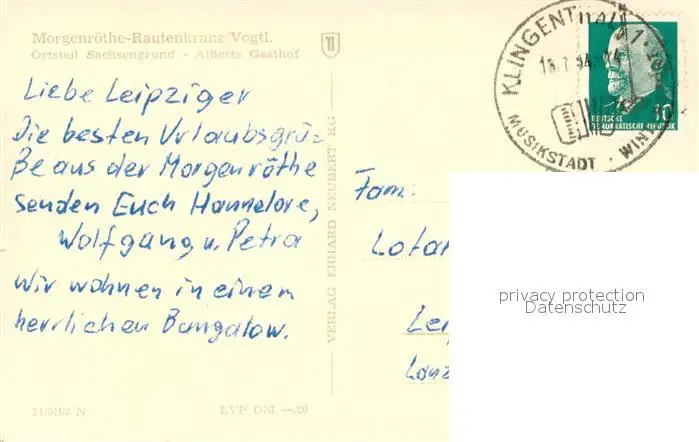 Morgenröthe-Rautenkranz Vogtl.
Ortsteil Sachsengrund - Alberts Gasthof
Liebe Leipziger
Die besten Urlaubsgrü-
ße aus der Morgenröthe
senden Euch Hannelore,
Wolfgang, u. Petra
Wir wohnen in einem
herrlichen Bungalow.
EVP DM —,20
VERLAG ERHARD NEUBERT KG
KLINGENTHAL 1
MUSIKSTADT · WIN
10
DEUTSCHE
DEMOKRATISCHE REPUBLIK
Fam.
Lotar
Lei
privacy protection
Datenschutz